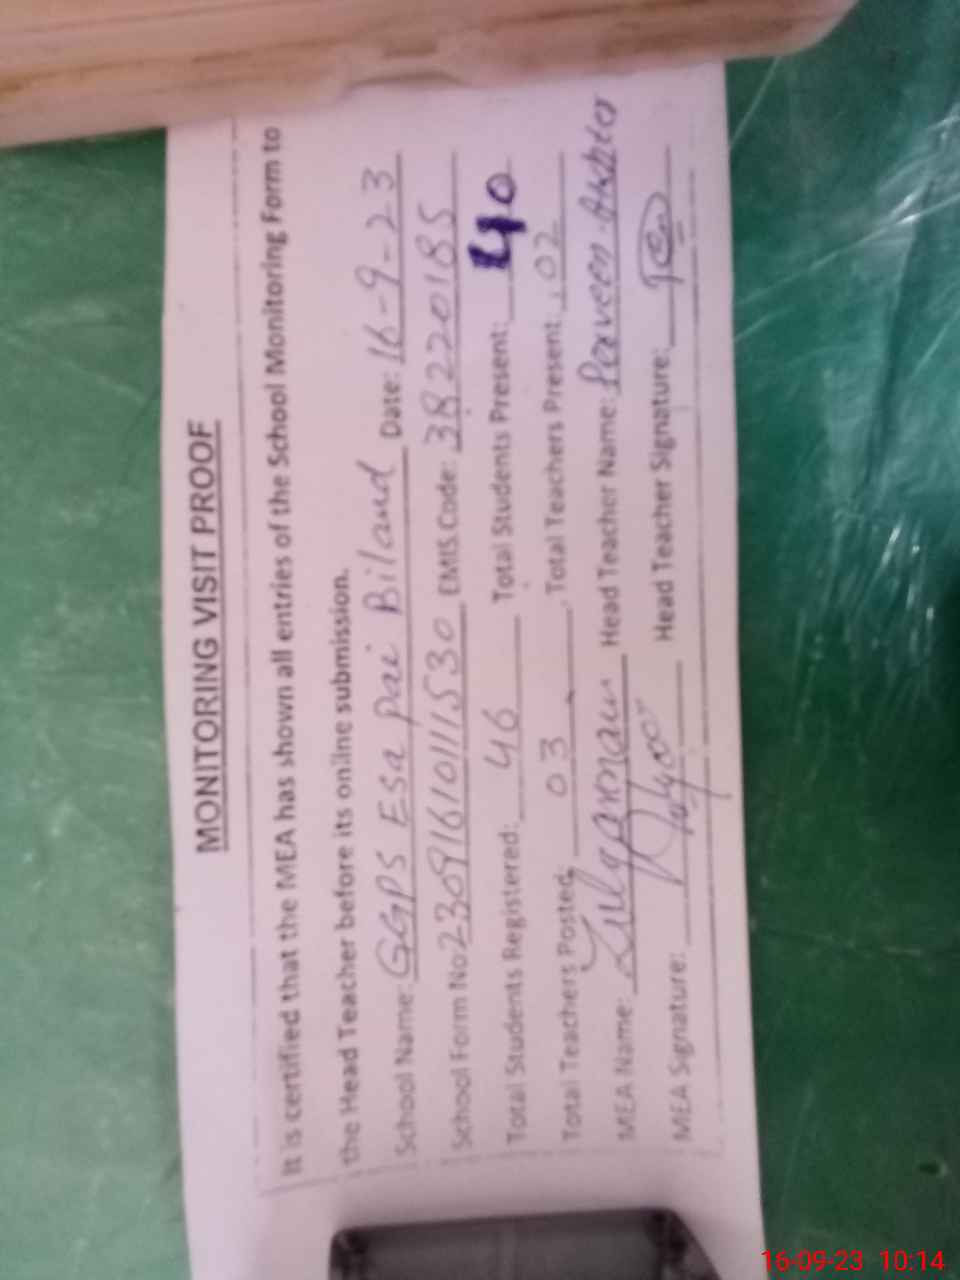 MONITORING VISIT PROOF
It is certified that the MEA has shown all entries of the School Monitoring Form to
the Head Teacher before its online submission.
School Name: GGPS Esa pai Biland Date: 16-9-23
School Form No 230916101111530 EMIS Code: 38220185
Total Students Registered: 46 Total Students Present: 40
Total Teachers Posted: 03, Total Teachers Present: 02
MEA Name: Zulqarnain Head Teacher Name: Parveen Akhter
MEA Signature: Head Teacher Signature:
16-09-23 10:14